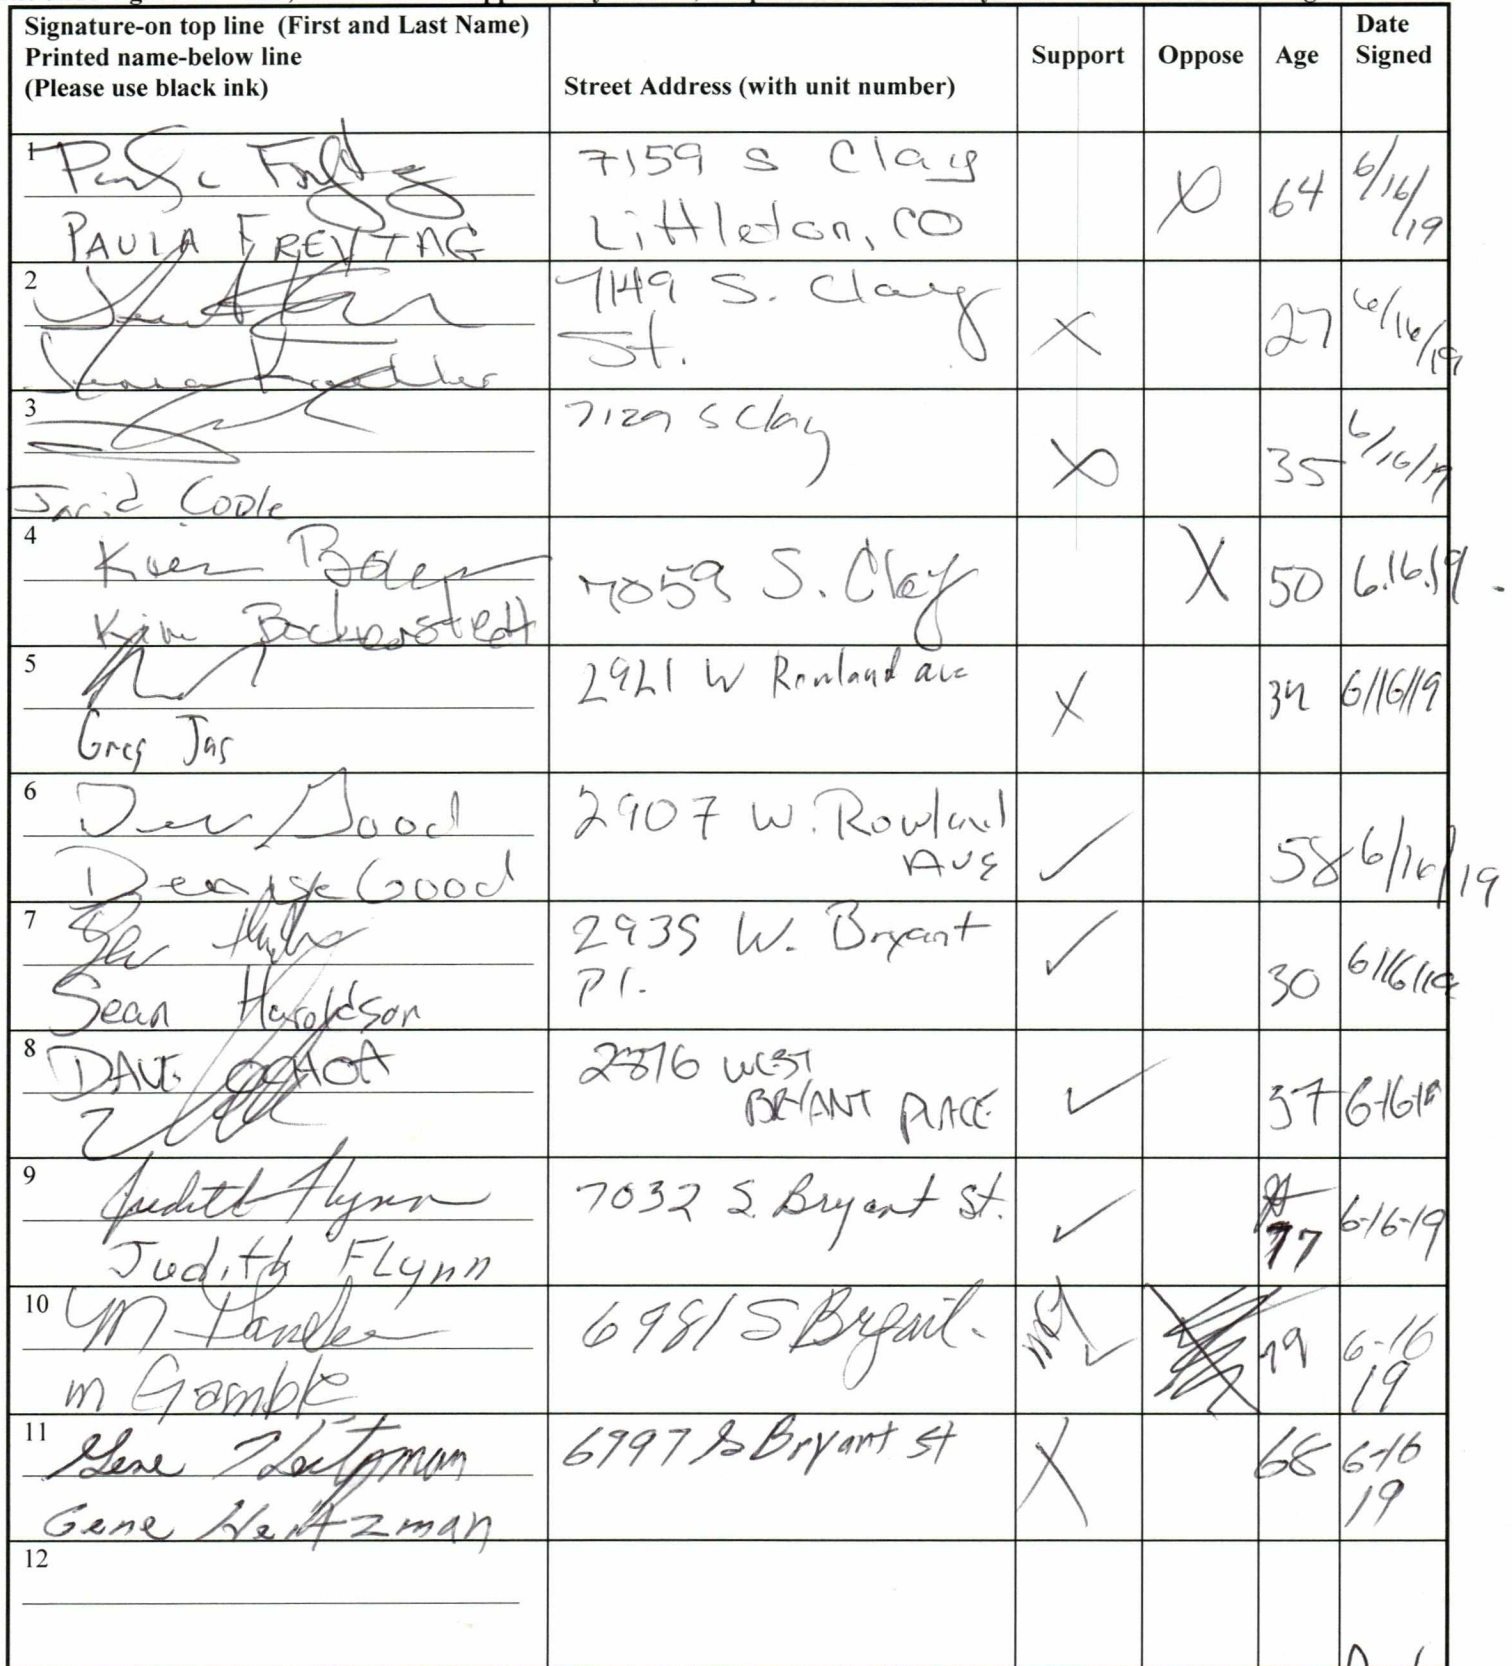 Signature-on top line (First and Last Name)
Printed name-below line
(Please use black ink)
Street Address (with unit number)
Support
Oppose
Age
Date
Signed
1
PAULA FREYTAG
7159 S Clay
Littleton, CO
X
64
6/16/19
2
7149 S. Clay
St.
X
27
6/16/19
3
Jarid Cople
7129 S Clay
X
35
6/16/19
4
Kim Bockenstedt
7059 S. Clay
X
50
6.16.19
5
Greg Jas
2921 W Rowland ave
X
34
6/16/19
6
Good
Denise Good
2907 W. Rowland
Ave
✓
58
6/16/19
7
Sean Haroldson
2939 W. Bryant
Pl.
✓
30
6/16/19
8
DAVE OCHOA
2876 WEST
BRYANT PLACE
✓
37
6-16-19
9
Judith Flynn
Judith FLynn
7032 S. Bryant St.
✓
77
6-16-19
10
m Gamble
6981 S Bryant.
✓
79
6-16
19
11
Gene Heitzman
Gene Heitzman
6997 S Bryant St
X
68
6-16
19
12